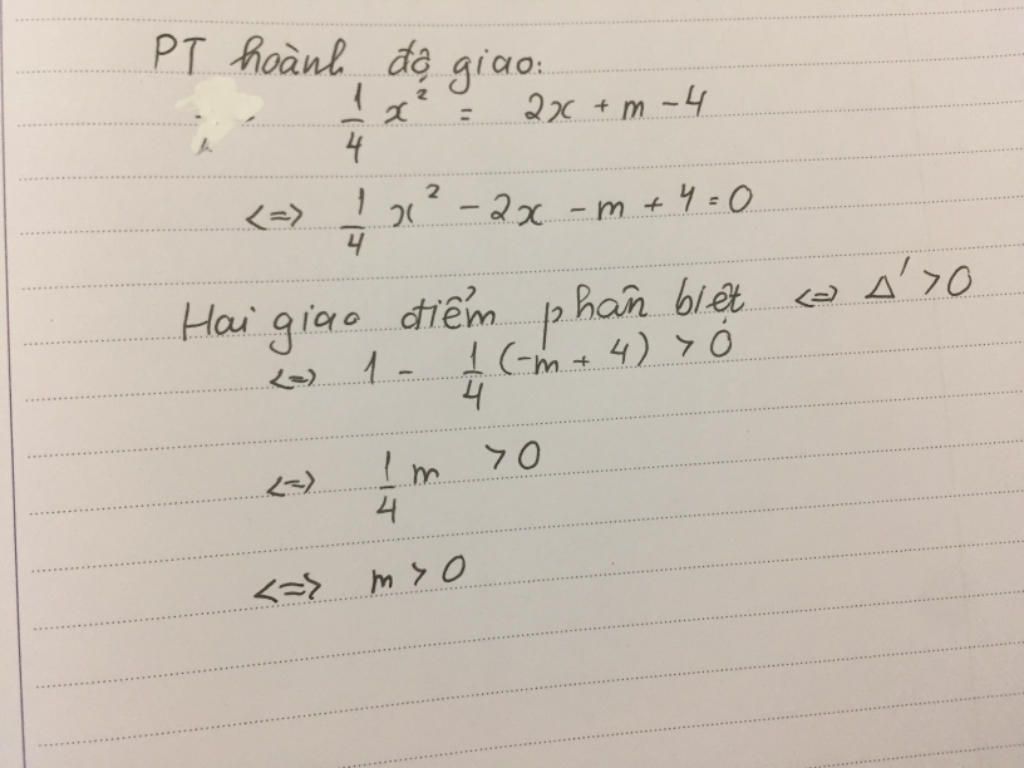 PT hoành độ giao:
1/4 x² = 2x + m - 4
<=> 1/4 x² - 2x - m + 4 = 0
Hai giao điểm phân biệt <=> Δ' > 0
<=> 1 - 1/4 (-m + 4) > 0
<=> 1/4 m > 0
<=> m > 0